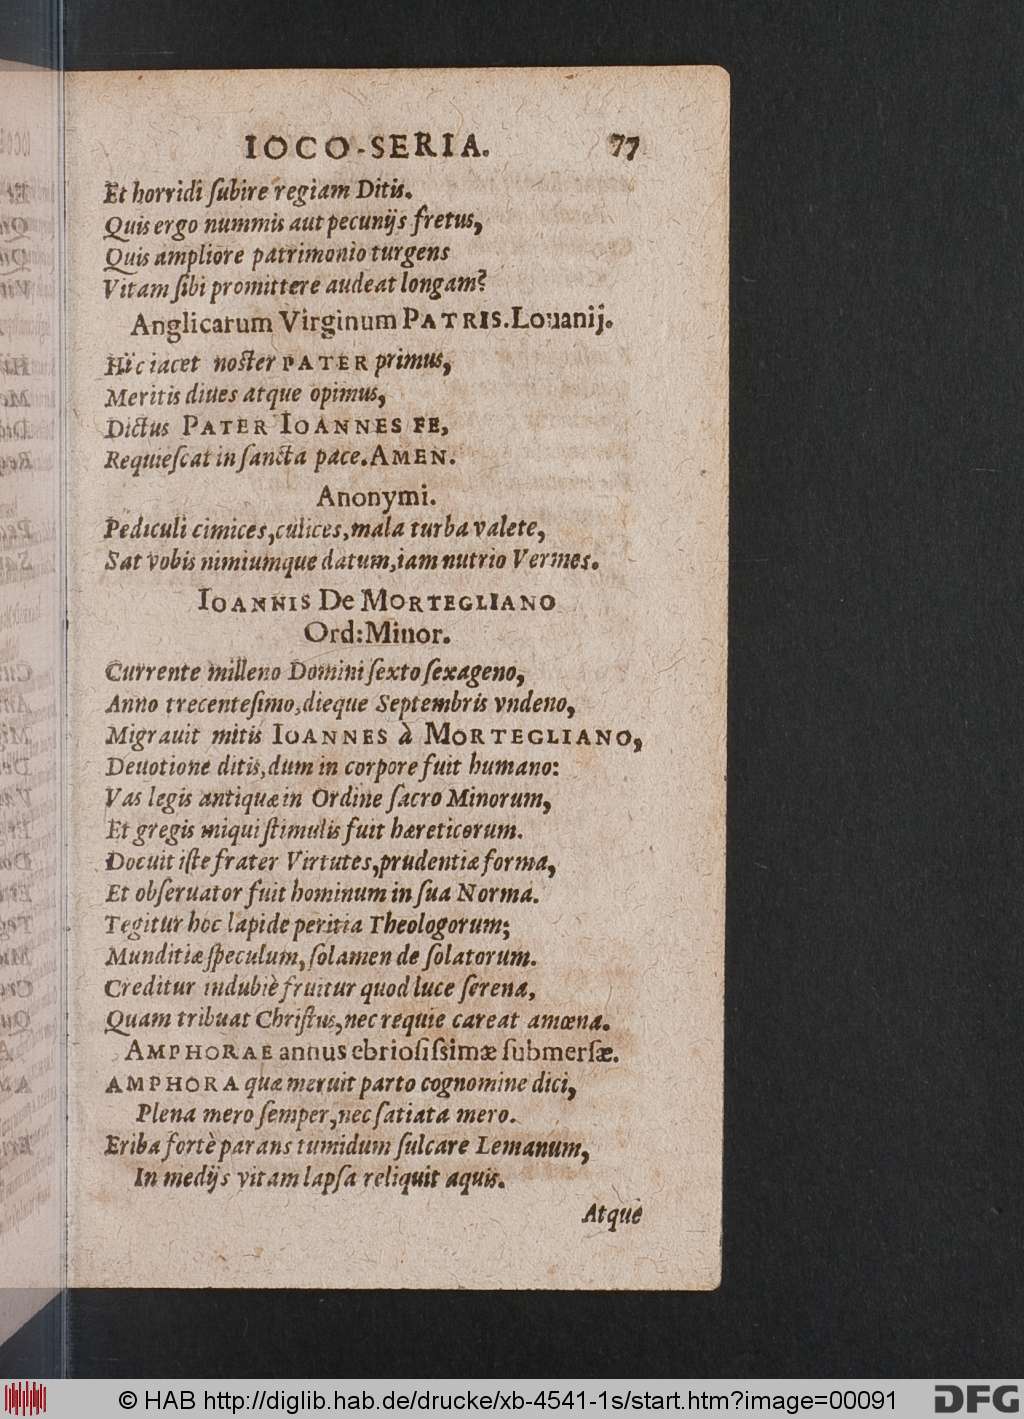 IOCO-SERIA. 77
Et horridi ſubire regiam Ditis.
Quis ergo nummis aut pecunijs fretus,
Quis ampliore patrimonio turgens
Vitam ſibi promittere audeat longam?
Anglicarum Virginum PATRIS. Louanij.
Hic iacet noſter PATER primus,
Meritis diues atque opimus,
Dictus PATER IOANNES FE,
Requieſcat in ſancta pace. AMEN.
Anonymi.
Pediculi cimices, culices, mala turba valete,
Sat vobis nimiumque datum, iam nutrio Vermes.
IOANNIS De MORTEGLIANO
Ord: Minor.
Currente milleno Domini ſexto ſexageno,
Anno trecenteſimo, dieque Septembris vndeno,
Migrauit mitis IOANNES à MORTEGLIANO,
Deuotione ditis, dum in corpore fuit humano:
Vas legis antiquæ in Ordine ſacro Minorum,
Et gregis iniqui ſtimulis fuit hæreticorum.
Docuit iſte frater Virtutes, prudentiæ forma,
Et obſeruator fuit hominum in ſua Norma.
Tegitur hoc lapide peritia Theologorum;
Munditiæ ſpeculum, ſolamen de ſolatorum.
Creditur indubiè fruitur quod luce ſerena,
Quam tribuat Chriſtus, nec requie careat amœna.
AMPHORAE annus ebrioſiſsimæ ſubmerſæ.
AMPHORA quæ meruit parto cognomine dici,
Plena mero ſemper, nec ſatiata mero.
Eriba fortè parans tumidum ſulcare Lemanum,
In medijs vitam lapſa reliquit aquis.
Atque
© HAB http://diglib.hab.de/drucke/xb-4541-1s/start.htm?image=00091
DFG